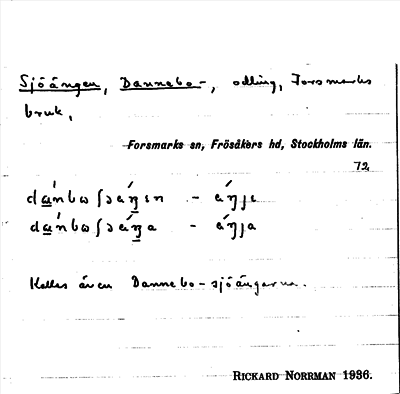 Sjöängen, Dannebo-, odling, Forsmarks
bruk.
Forsmarks sn, Frösåkers hd, Stockholms län.
72
Kallas även Dannebo-sjöängarna.
RICKARD NORRMAN 1936.